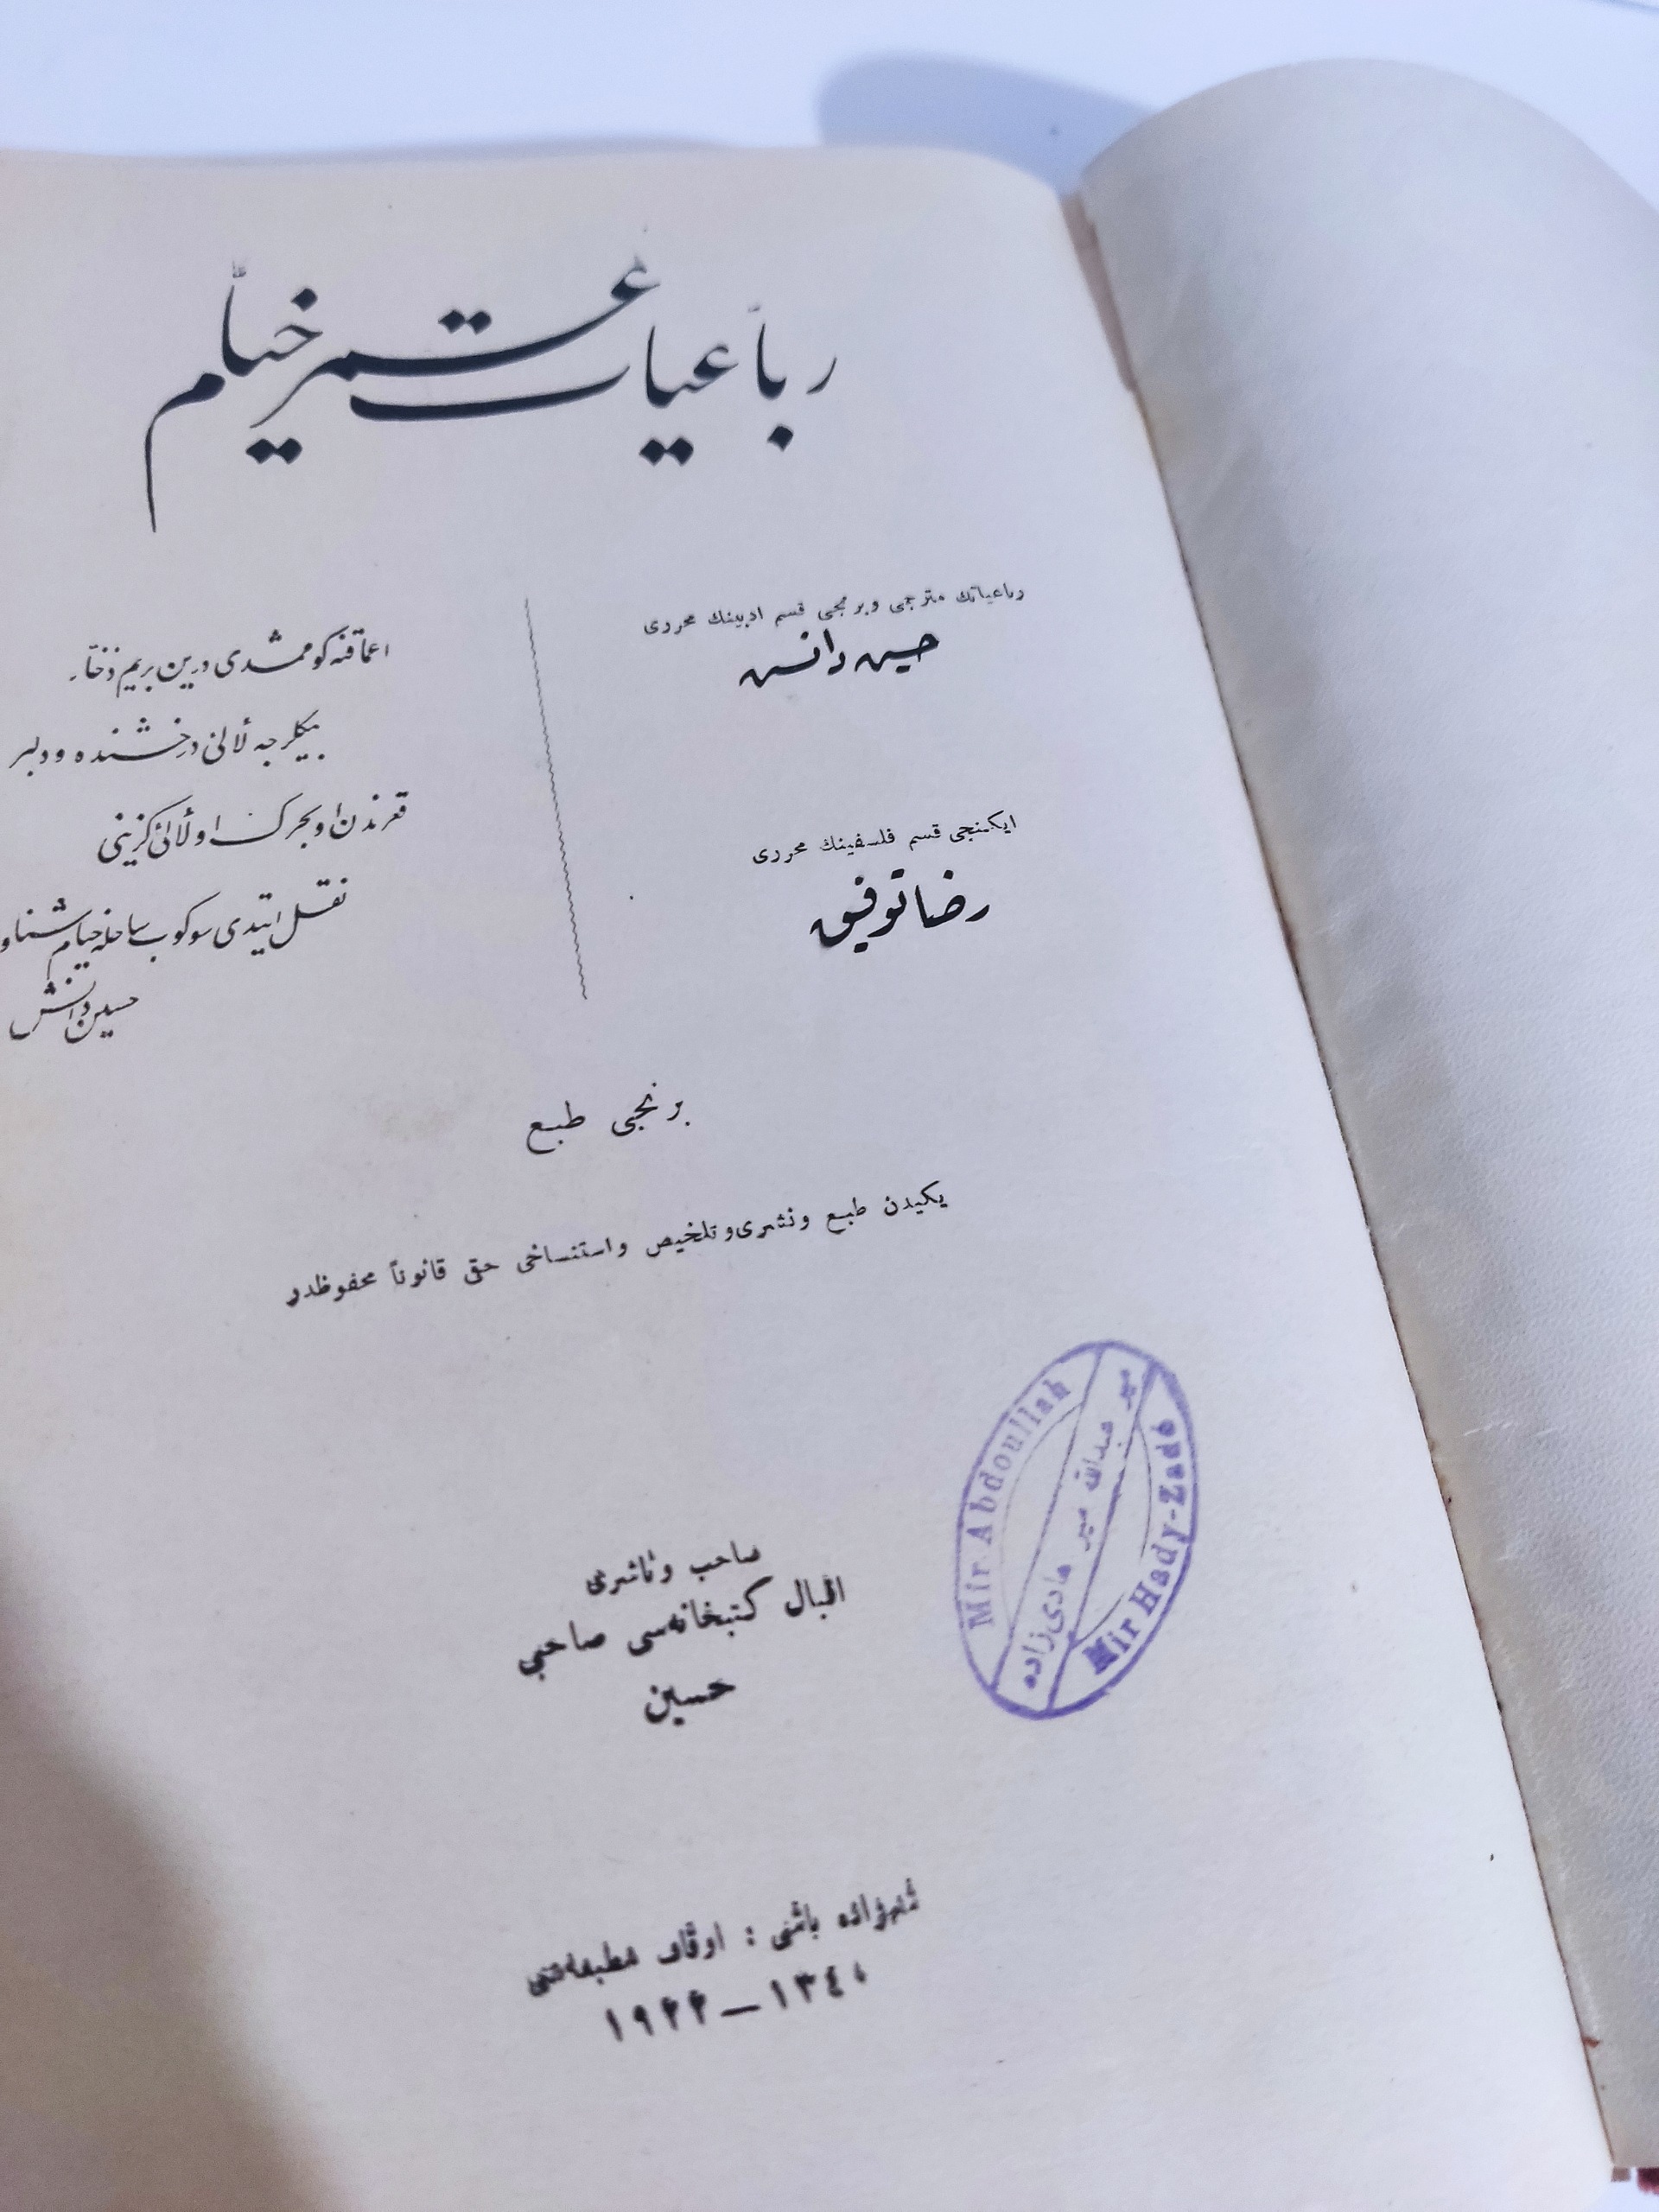 رباعيات عمر خيام
رباعياتك مترجمی و برنجی قسم ادبينك محرری
حسين دانش
ايكنجی قسم فلسفينك محرری
رضا توفيق
اعماقنه كومشدی درين بريم ذخار
بيكلرجه لآلئ درخشنده و دلبر
قعرندن او بحرك او لآلئ كزينی
نقل ايتدی سوكوب ساحله خيام شناو
حسين دانش
برنجی طبع
يكيدن طبع ونشری و تلخيص واستنساخی حقی قانوناً محفوظدر
Mir Abdoullah
مير عبدالله مير هادی زاده
Mir Hady-Zadé
صاحب و ناشری
اقبال كتبخانه‌سی صاحبی
حسين
شهزاده باشی : اوقاف مطبعه‌سی
١٣٤٠ — ١٩٢٢